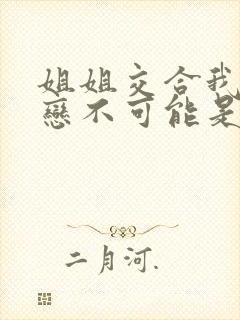 姐姐交合我
戀不可能是
二月河.